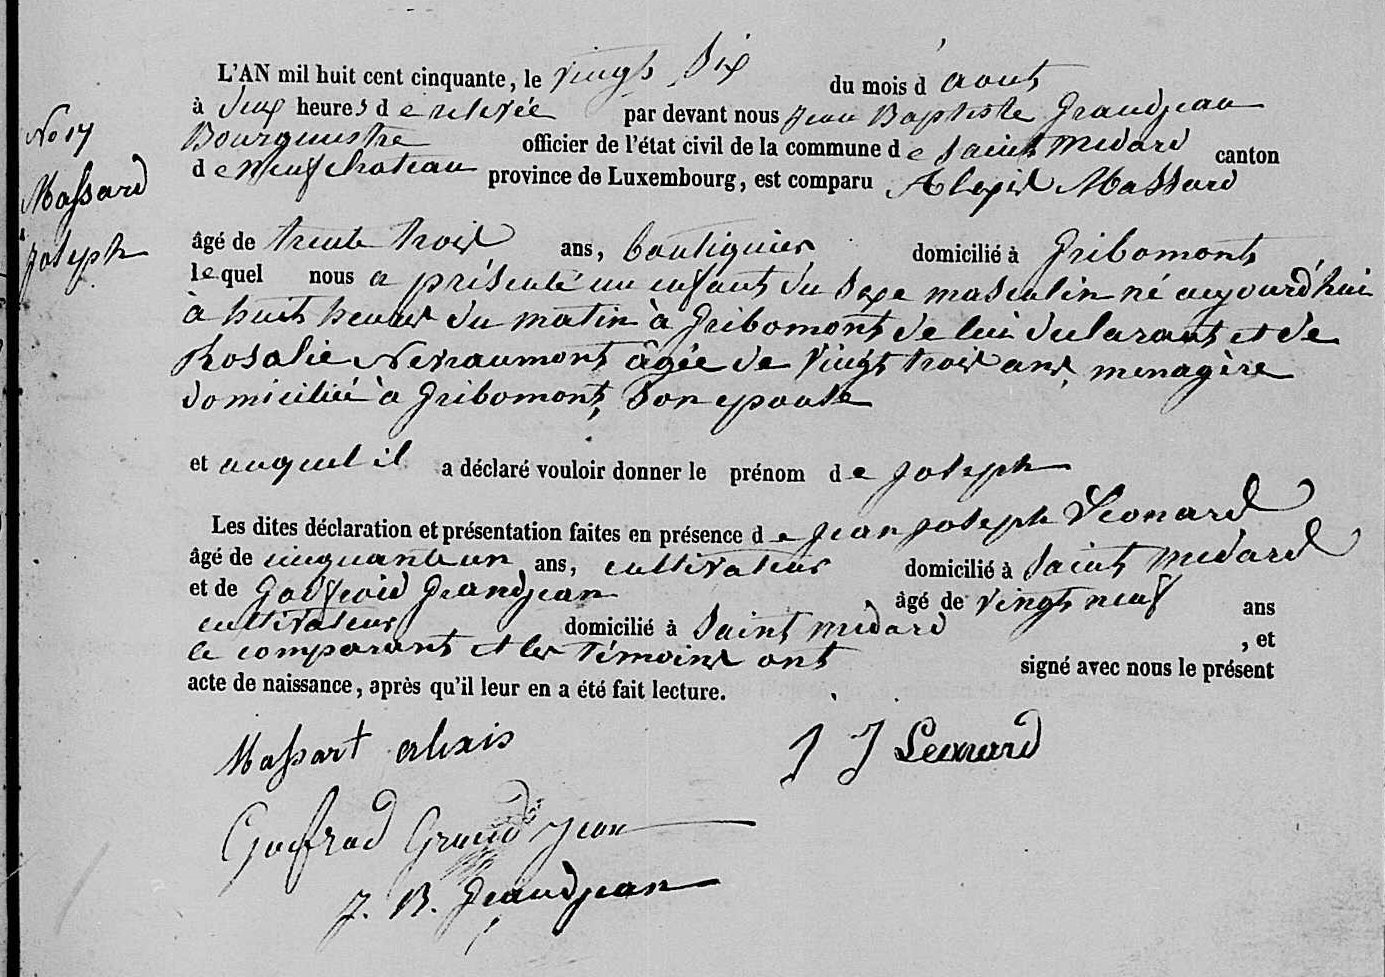 L'AN mil huit cent cinquante, le vingt six du mois d'août
à deux heures de relevée par devant nous Jean Baptiste Grandjean
Bourgmestre officier de l'état civil de la commune de Saint Médard canton
de Neufchateau province de Luxembourg, est comparu Alexis Massard
No 17
Massard
Joseph
âgé de trente trois ans, boutiquier domicilié à Gribomont
lequel nous a présenté un enfant du sexe masculin né aujourd'hui
à huit heures du matin à Gribomont de lui déclarant et de
Rosalie Nevraumont âgée de vingt trois ans, menagère
domiciliée à Gribomont, son epouse
et auquel il a déclaré vouloir donner le prénom de Joseph
Les dites déclaration et présentation faites en présence de Jean Joseph Léonard
âgé de cinquante un ans, cultivateur domicilié à Saint Médard
et de Godfroid Grandjean, âgé de vingt neuf ans
cultivateur domicilié à Saint Médard, et
le comparant et les témoins ont signé avec nous le présent
acte de naissance, après qu'il leur en a été fait lecture.
Massart alexis J J Leonard
Godfrod Grandjean
J. B. Grandjean